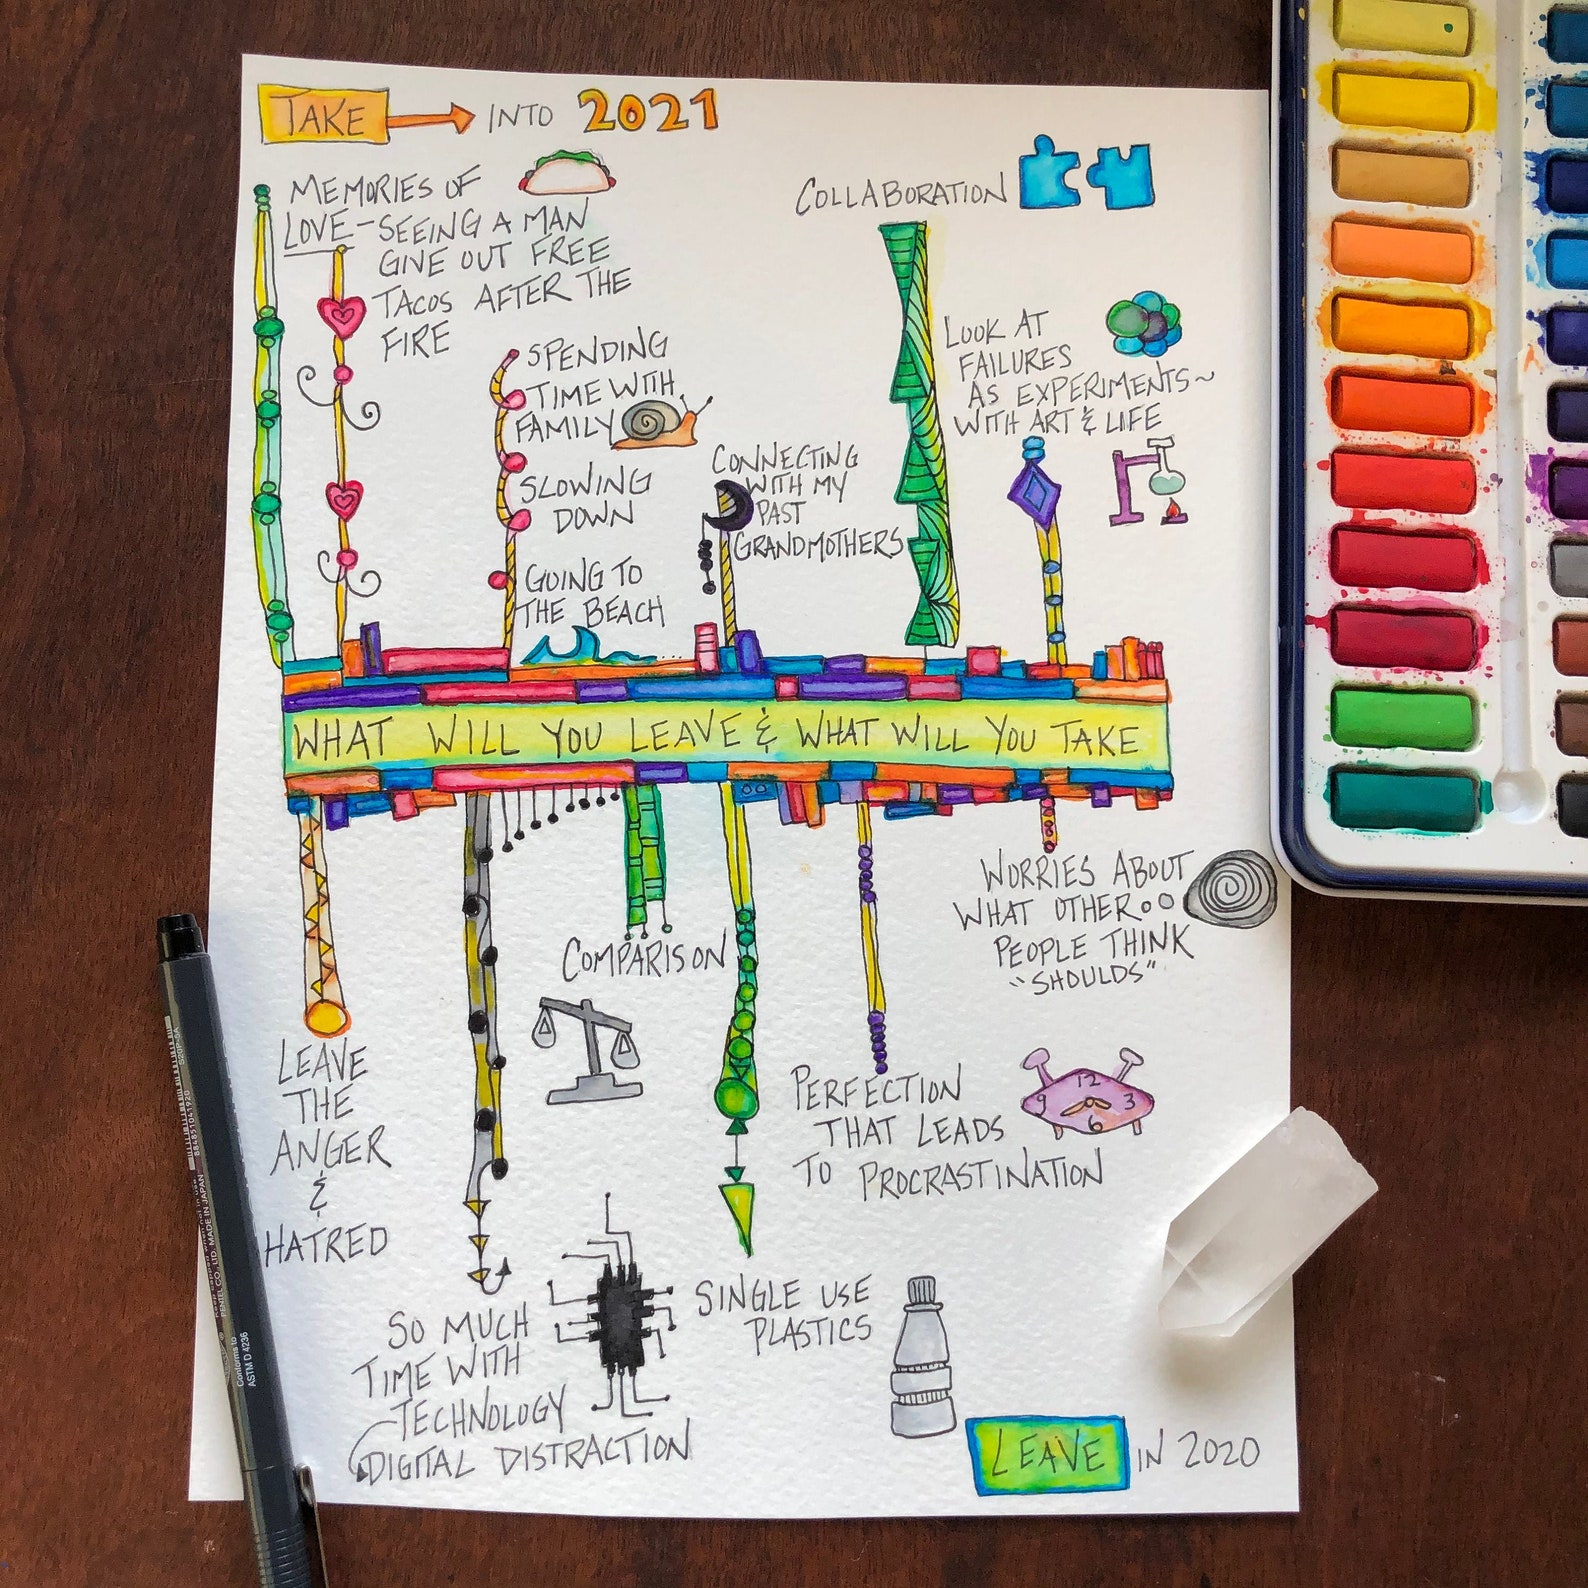 TAKE → INTO 2021
MEMORIES OF
LOVE - SEEING A MAN
GIVE OUT FREE
TACOS AFTER THE
FIRE
SPENDING
TIME WITH
FAMILY
SLOWING
DOWN
GOING TO
THE BEACH
CONNECTING
WITH MY
PAST
GRANDMOTHERS
COLLABORATION
LOOK AT
FAILURES
AS EXPERIMENTS~
WITH ART & LIFE
WHAT WILL YOU LEAVE & WHAT WILL YOU TAKE
LEAVE
THE
ANGER
&
HATRED
SO MUCH
TIME WITH
TECHNOLOGY
DIGITAL DISTRACTION
COMPARISON
SINGLE USE
PLASTICS
PERFECTION
THAT LEADS
TO PROCRASTINATION
12
9 3
6
WORRIES ABOUT
WHAT OTHER
PEOPLE THINK
"SHOULDS"
LEAVE IN 2020
S20P-5A
884851041920
MADE IN JAPAN
PENTEL CO., LTD.
Conforms to
ASTM D 4236